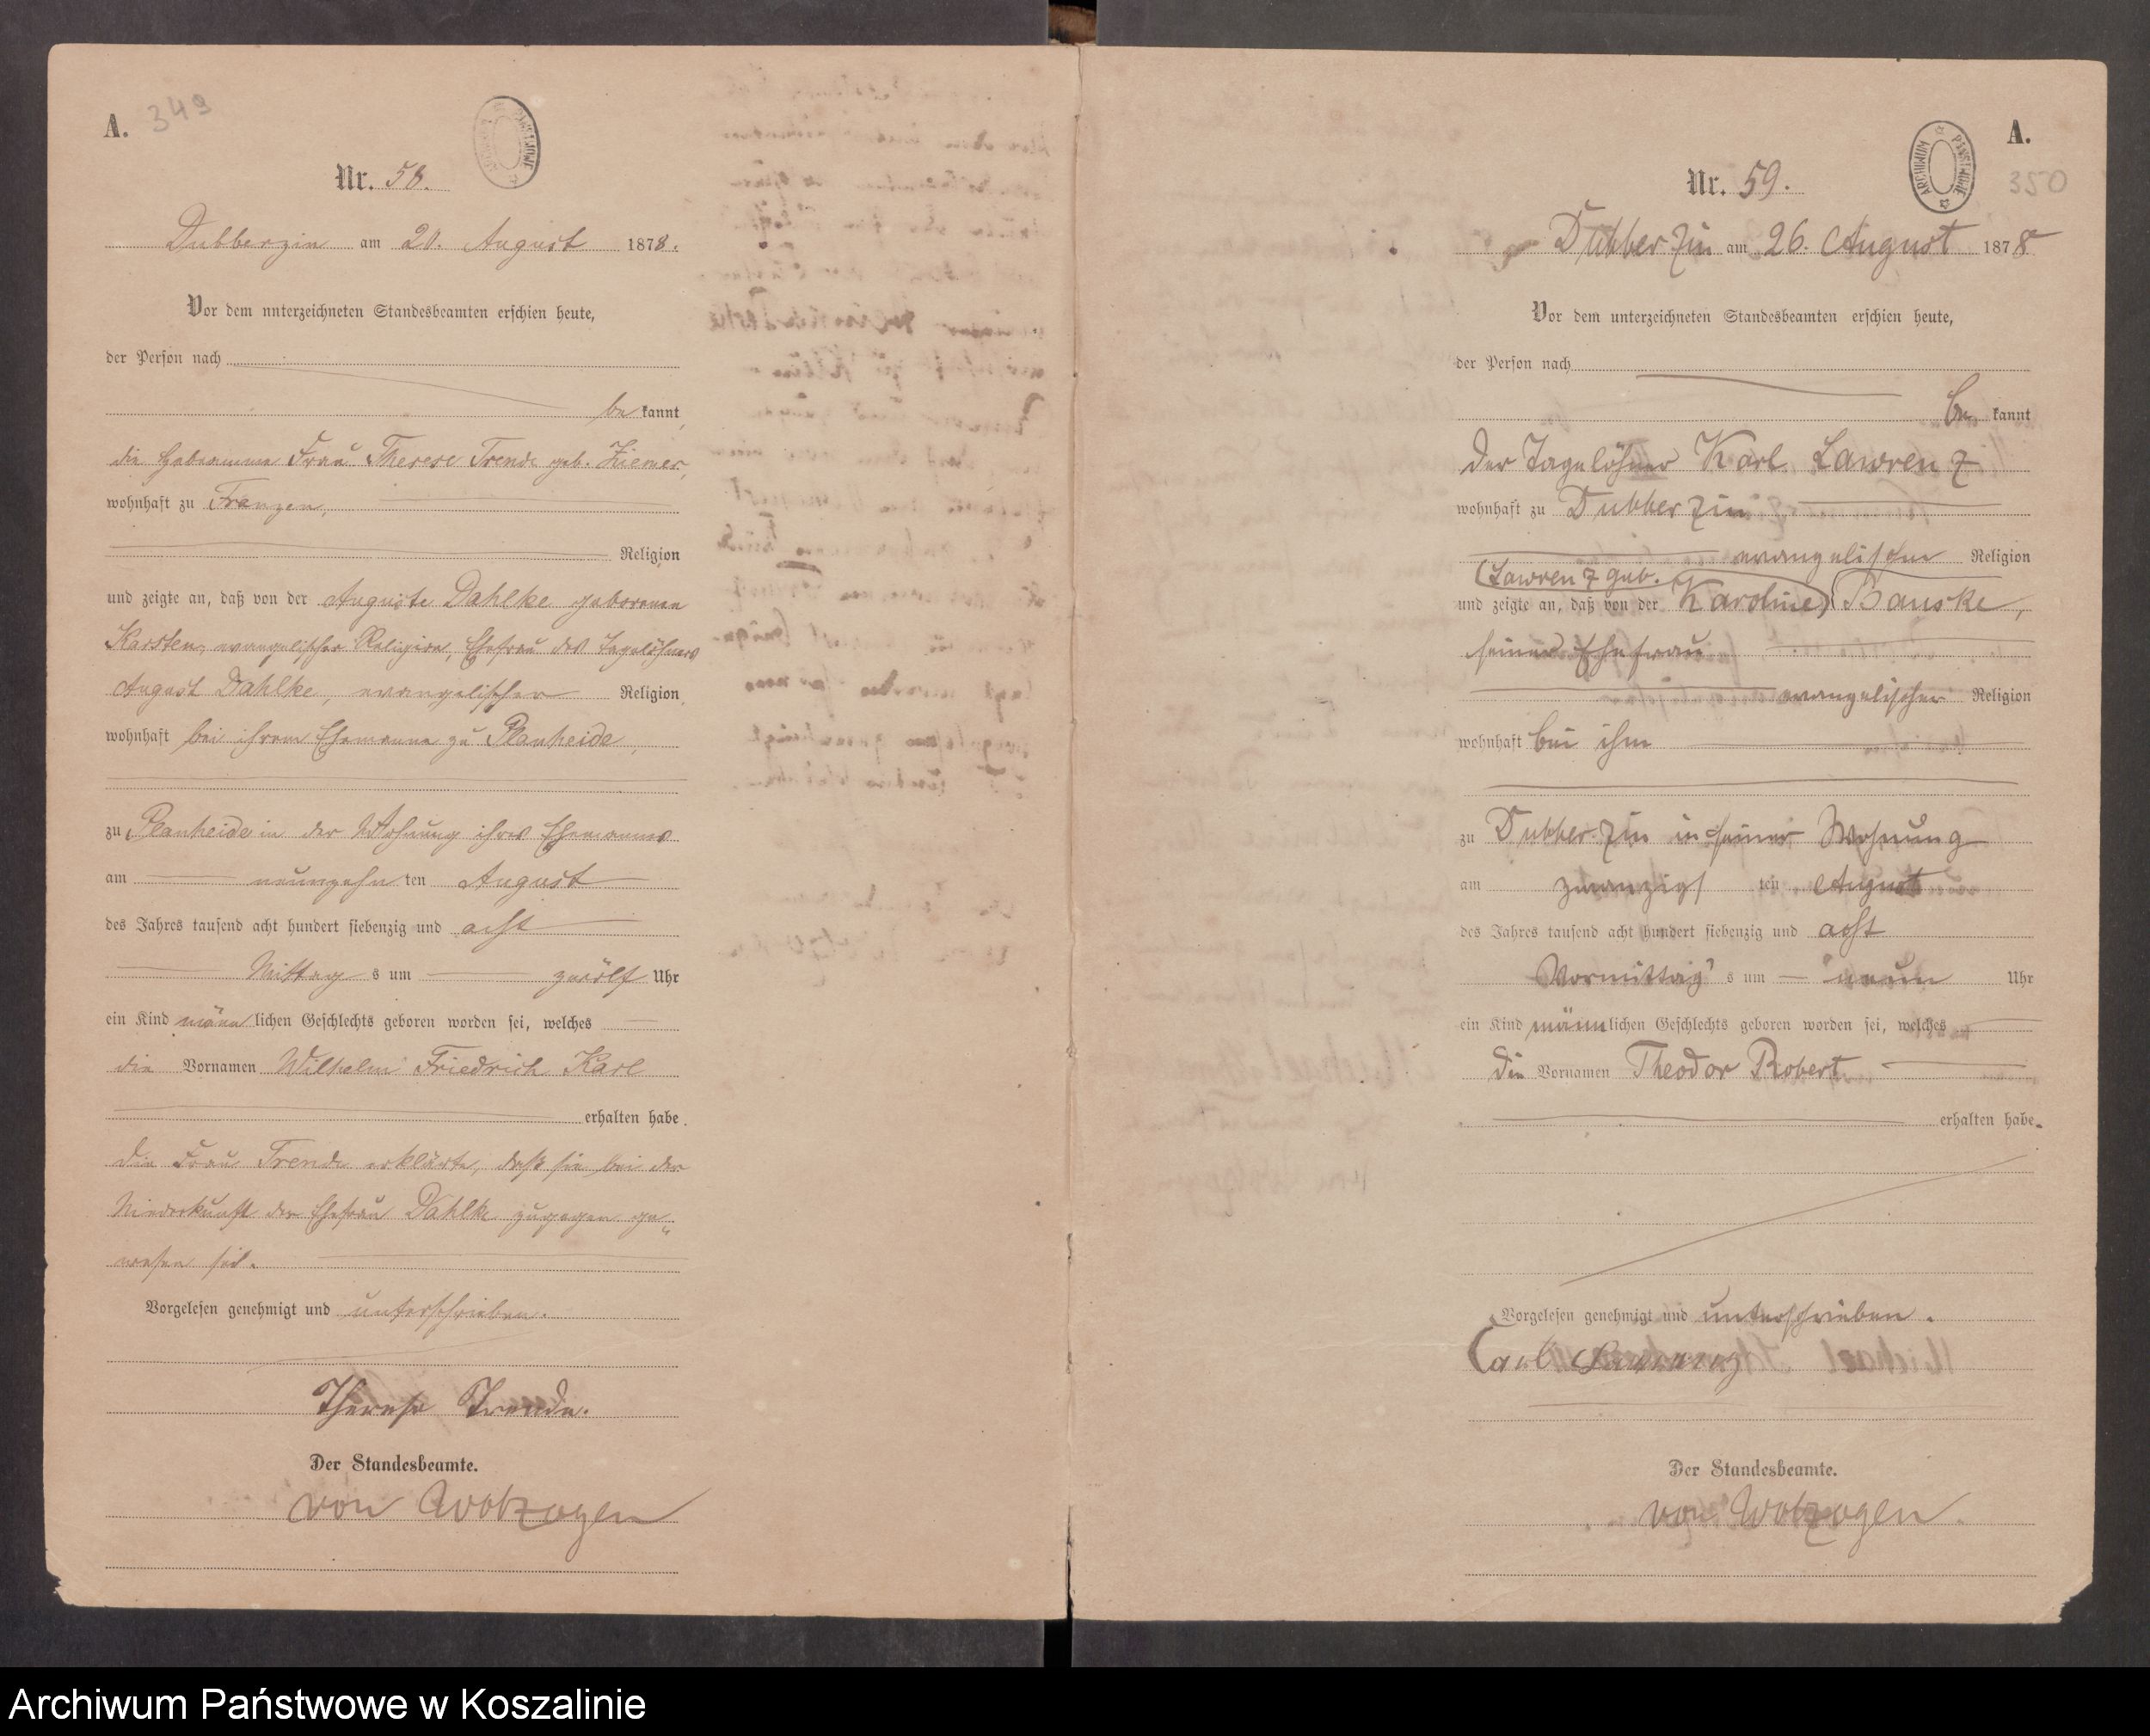 A. 349
Nr. 58.
Dubberzin am 20. August 1878.
Vor dem unterzeichneten Standesbeamten erschien heute,
der Person nach
be kannt,
die Hebeamme Frau Therese Trende geb. Ziemer,
wohnhaft zu Franzen,
Religion
und zeigte an, daß von der Auguste Dahlke geborenen
Karsten, evangelischer Religion, Ehefrau des Tagelöhners
August Dahlke, evangelischer Religion,
wohnhaft bei ihrem Ehemanne zu Planheide,
zu Planheide in der Wohnung ihres Ehemannes
am neunzehn ten August
des Jahres tausend acht hundert siebenzig und acht
Mittag s um zwölf Uhr
ein Kind männ lichen Geschlechts geboren worden sei, welches
die Vornamen Wilhelm Friedrich Karl
erhalten habe.
Die Frau Trende erklärte, daß sie bei der
Niederkunft der Ehefrau Dahlke zugegen ge„
wesen sei.
Vorgelesen genehmigt und unterschrieben.
Therese Trende.
Der Standesbeamte.
von Wolzogen
A.
350
ARCHIWUM PAŃSTWOWE
Nr. 59.
Dubberzin am 26. August 1878
Vor dem unterzeichneten Standesbeamten erschien heute,
der Person nach
be kannt
der Tagelöhner Karl Lawrenz
wohnhaft zu Dubberzin
evangelischen Religion
(Lawrenz geb.
und zeigte an, daß von der Karoline) Bauske,
seiner Ehefrau
evangelischer Religion
wohnhaft bei ihm
zu Dubberzin in seiner Wohnung
am zwanzigs ten August
des Jahres tausend acht hundert siebenzig und acht
Vormittag s um neun Uhr
ein Kind männ lichen Geschlechts geboren worden sei, welches
die Vornamen Theodor Robert
erhalten habe.
Vorgelesen genehmigt und unterschrieben.
Carl Lawrenz
Der Standesbeamte.
von Wolzogen.
Archiwum Państwowe w Koszalinie